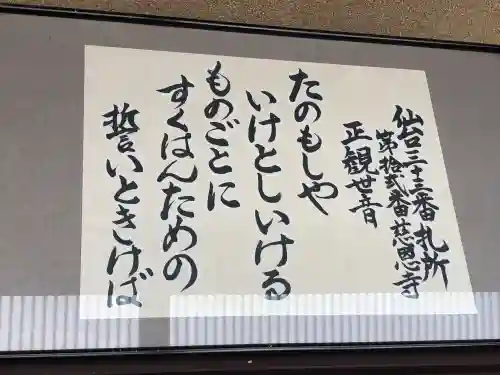 仙台三十三番札所
第拾弐番慈恩寺
正観世音
たのもしや
いけとしいける
ものごとに
すくはんための
誓いときけば